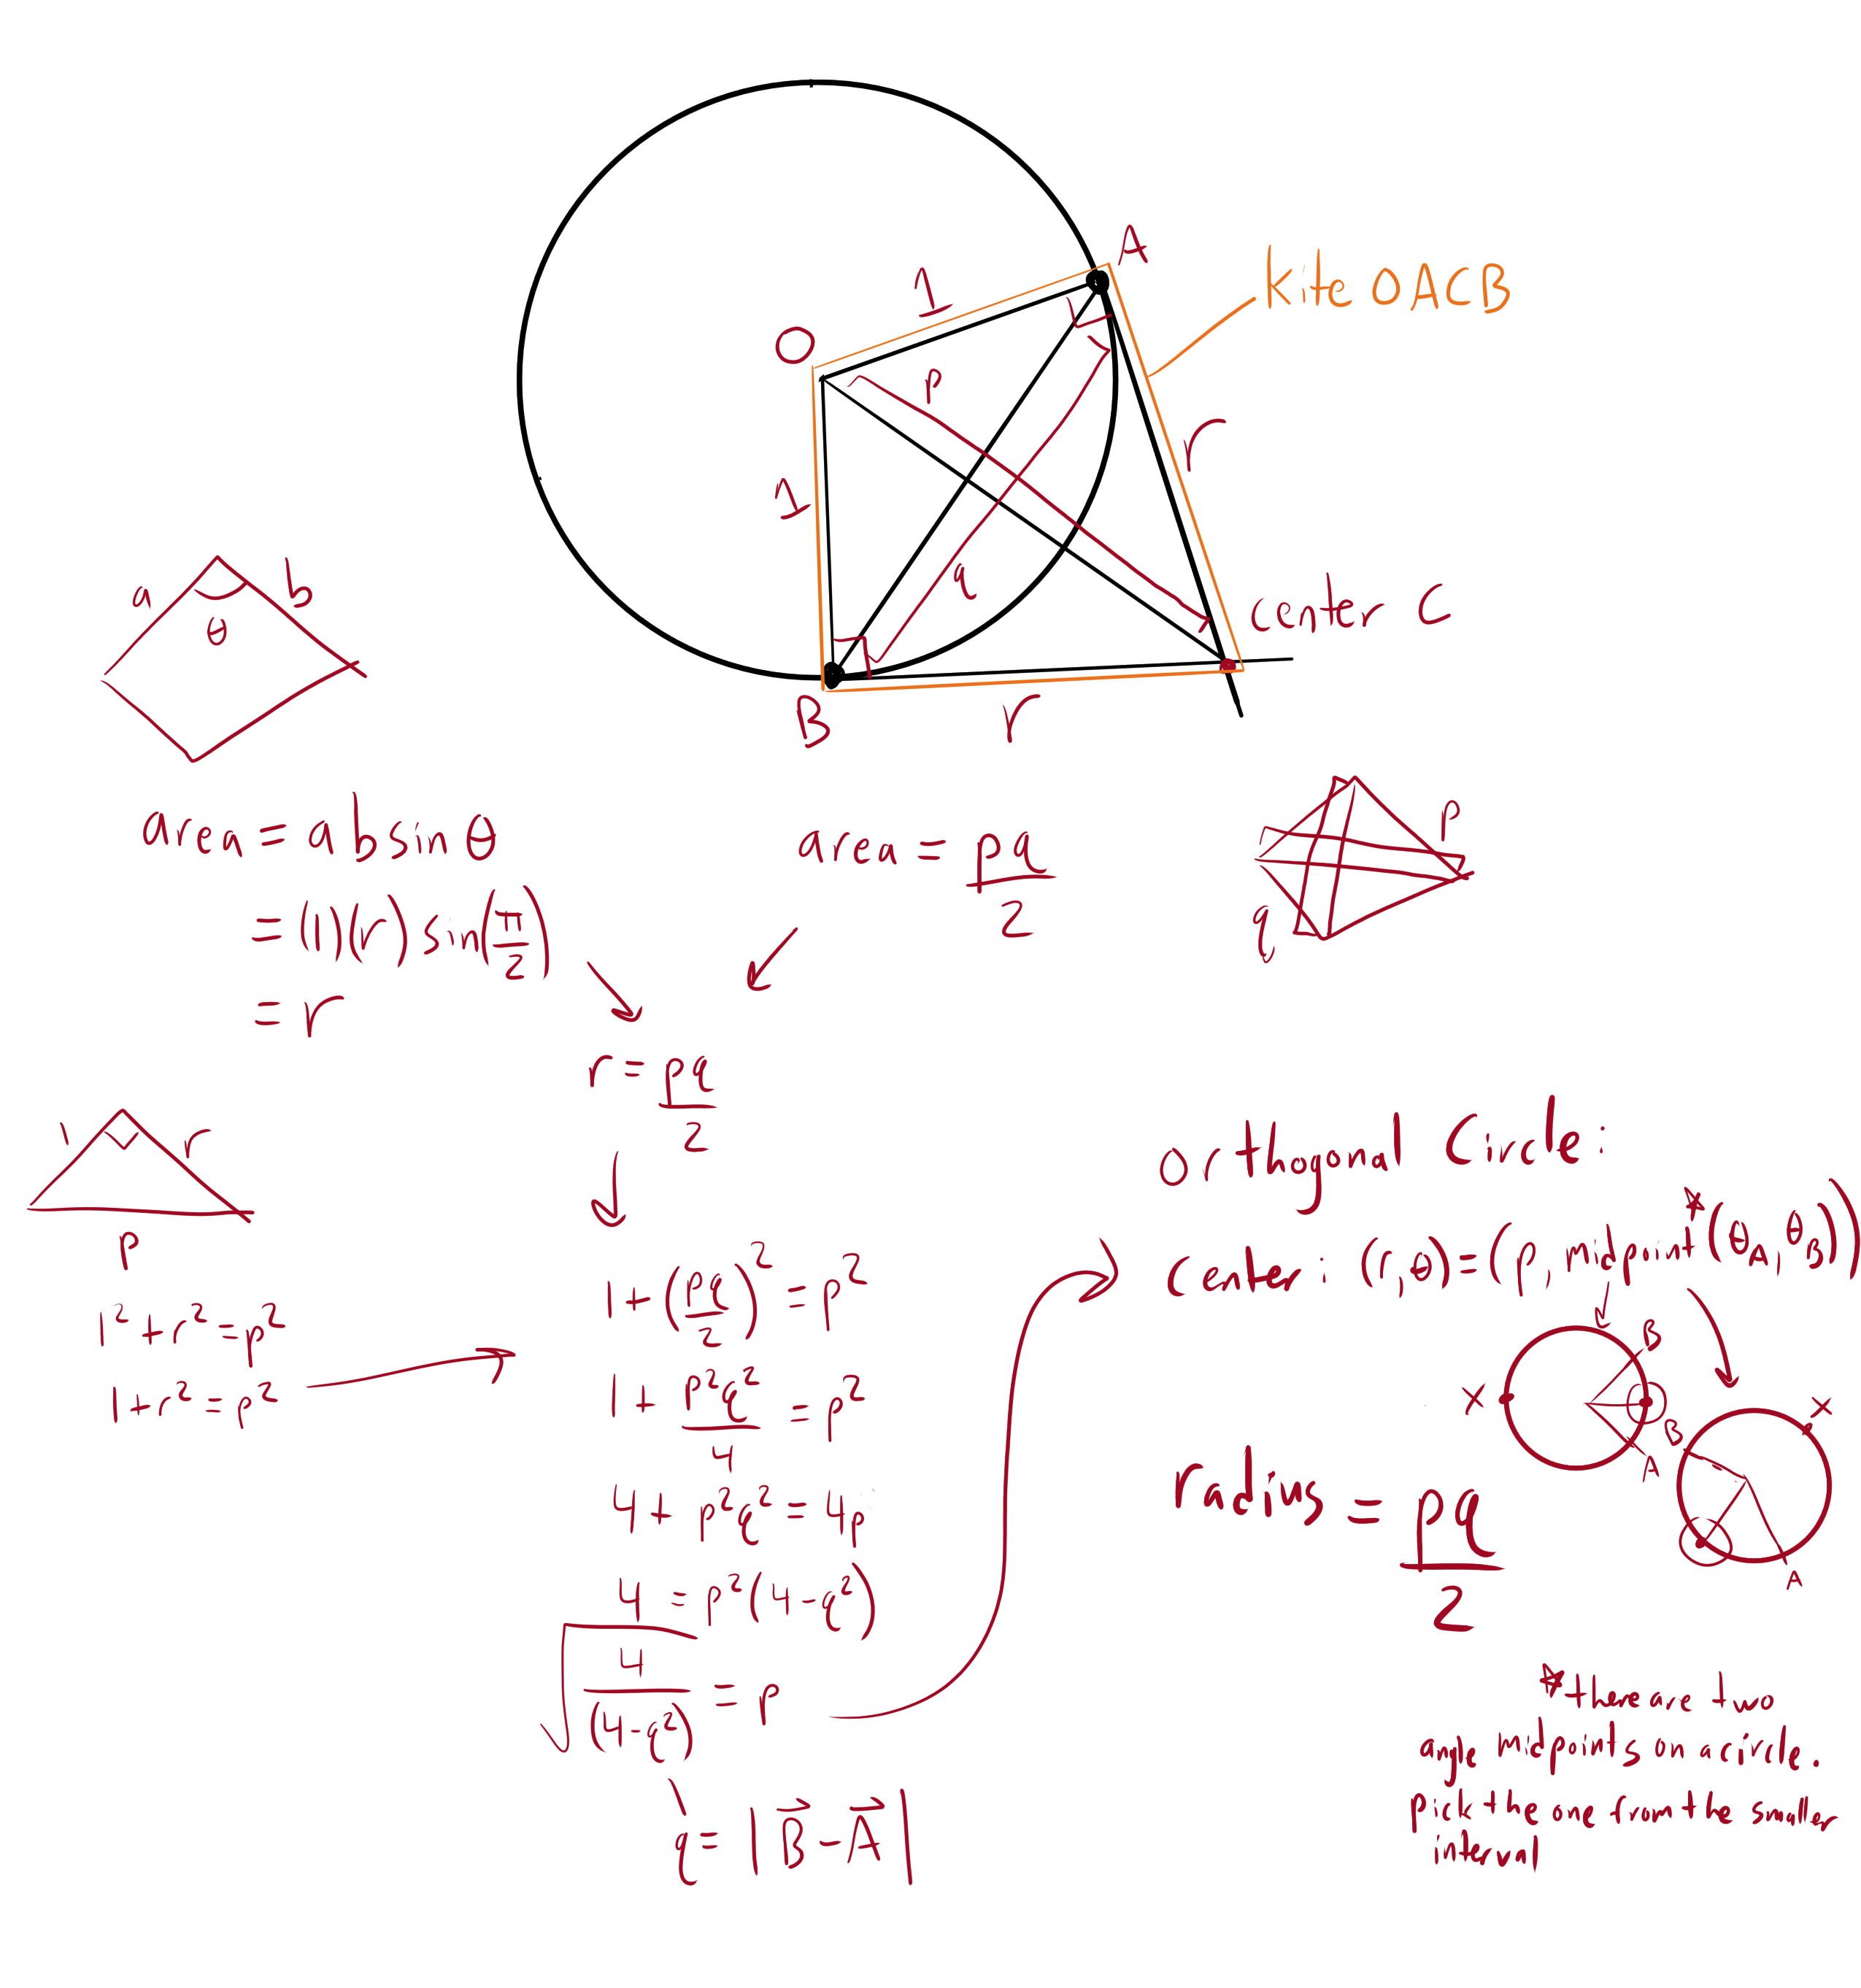 A
1
Kite OACB
O
p
r
1
q
center C
B
r
a
b
θ
p
q
area = ab sin θ
= (1)(r) sin(π/2)
= r
area = pq/2
r = pq/2
1
r
p
1² + r² = p²
1 + r² = p²
1 + (pq/2)² = p²
1 + p²q²/4 = p²
4 + p²q² = 4p
4 = p²(4 - q²)
√(4/(4 - q²)) = p
q = |B⃗ - A⃗|
Orthogonal Circle:
Center: (r, θ) = (p, midpoint*(θ_A, θ_B))
B
X
A
X
B
A
radius = pq/2
*there are two
angle midpoints on a circle.
Pick the one from the smaller
interval